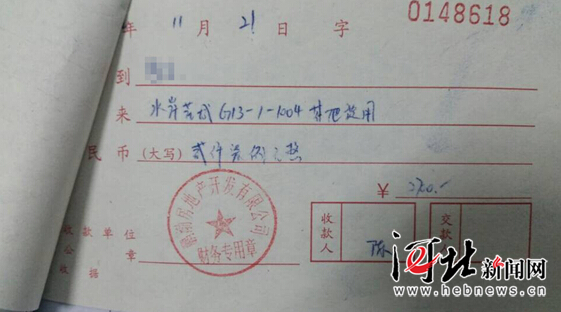 年 11 月 21 日 字 0148618
到
来 水岸 G13-1-1004 其他费用
民币(大写) 贰仟 佰元整
¥ 2700.-
房地产开发有限公司
财务专用章
收款单位
公章
收据
收款人 陈
交款
河北新闻网
www.hebnews.cn